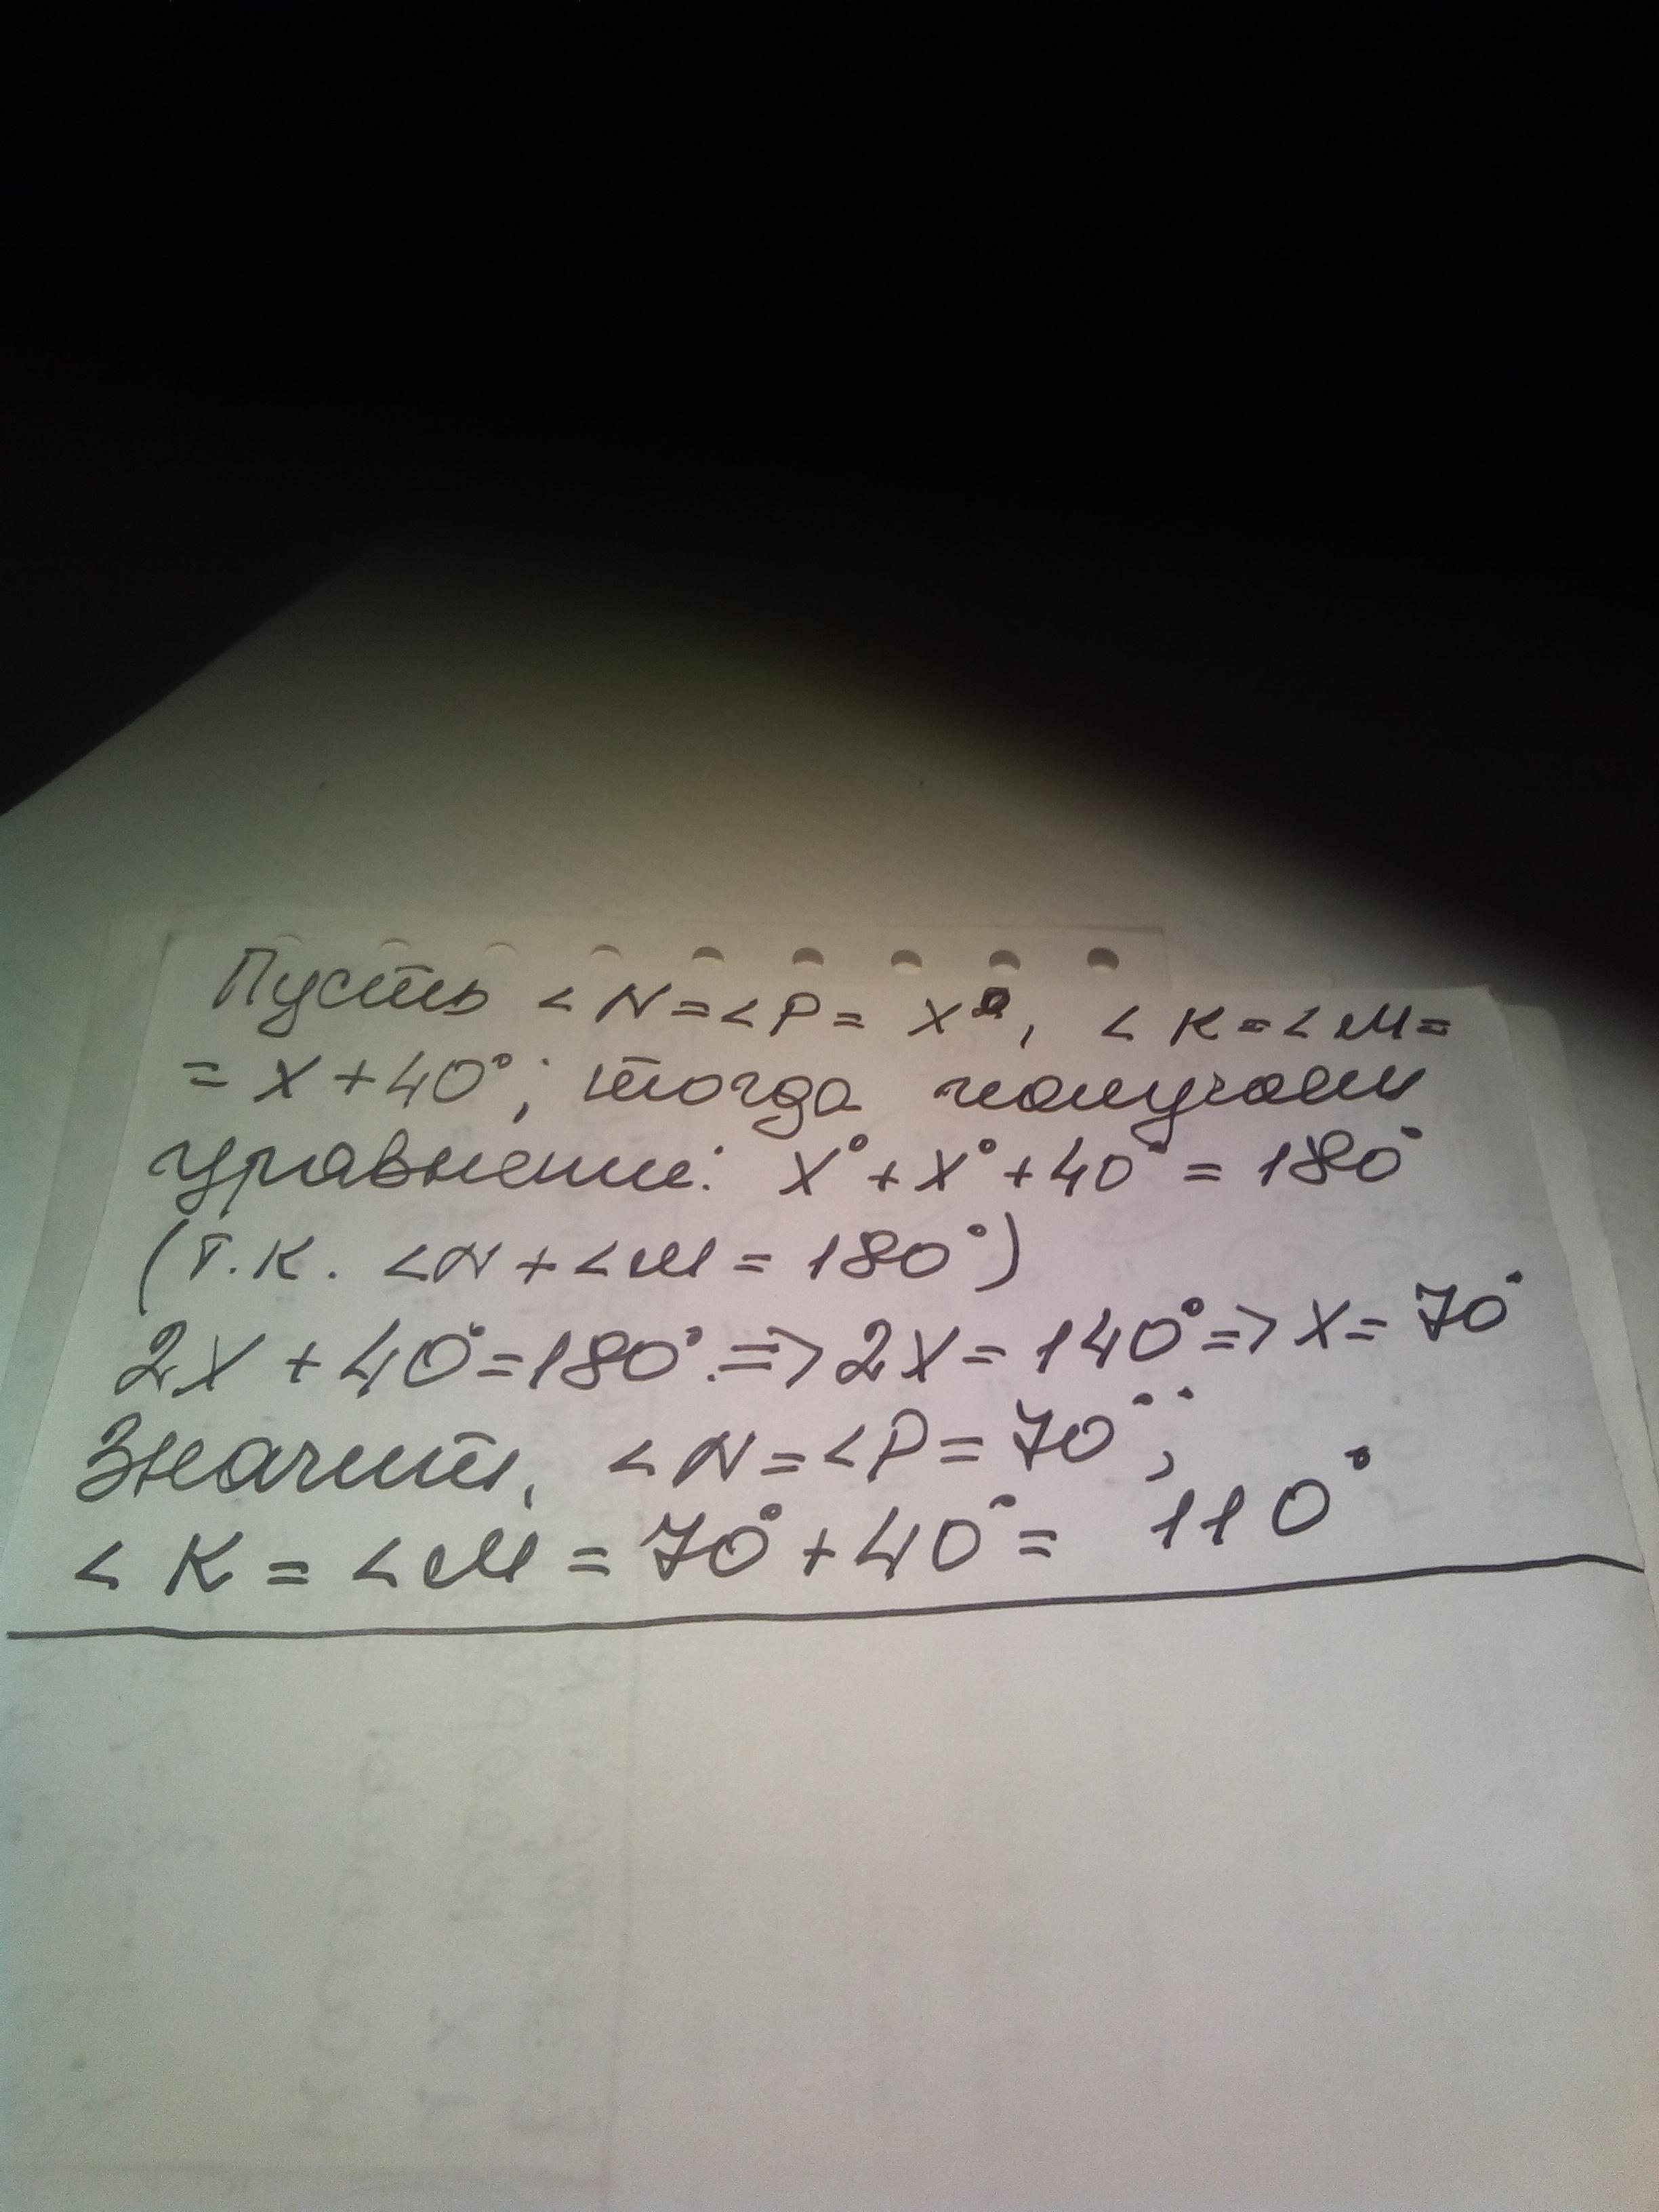 Пусть < N = < P = x°, < K = < M =
= x + 40°; тогда получаем
уравнение: x° + x° + 40° = 180°
(т.к. < N + < M = 180°)
2x + 40° = 180° => 2x = 140° => x = 70°
Значит, < N = < P = 70°;
< K = < M = 70° + 40° = 110°